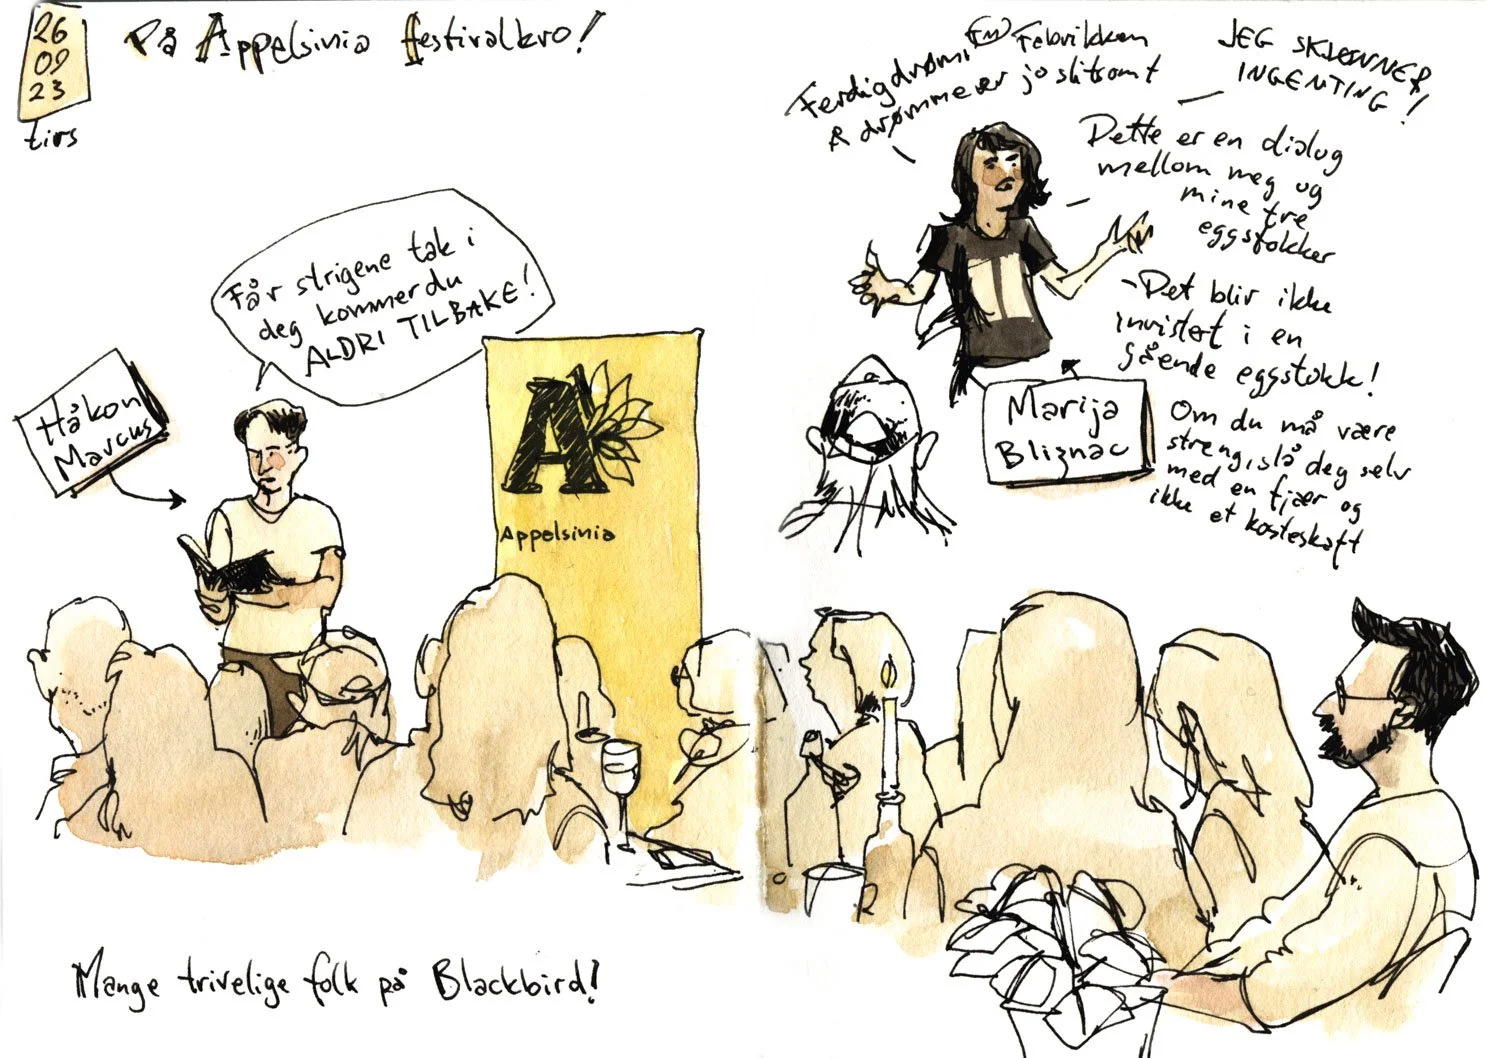 26
09
23
tirs
På Appelsinia festivalkro!
Får strigene tak i
deg kommer du
ALDRI TILBAKE!
Håkon
Marcus
A
Appelsinia
Mange trivelige folk på Blackbird!
Ferdigdrømt
& drømmer
jo slitsomt
JEG SKJØNNER
INGENTING!
Dette er en dialog
mellom meg og
mine tre
eggstokker
-Det blir ikke
invitert i en
gående eggstokk!
Marija
Bliznac
Om du må være
streng, slå deg selv
med en fjær og
ikke et kosteskaft